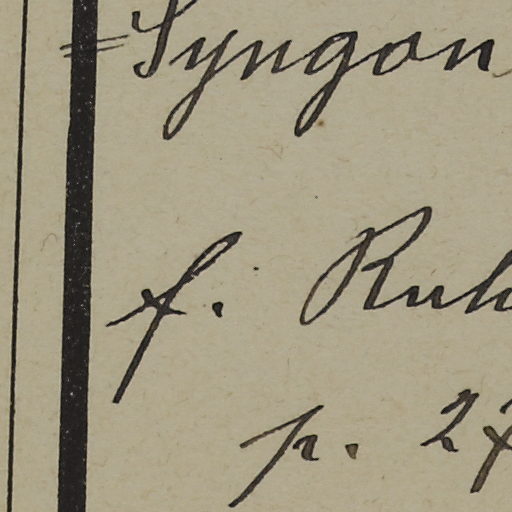 =Syngon
f. Ruh
p. 27